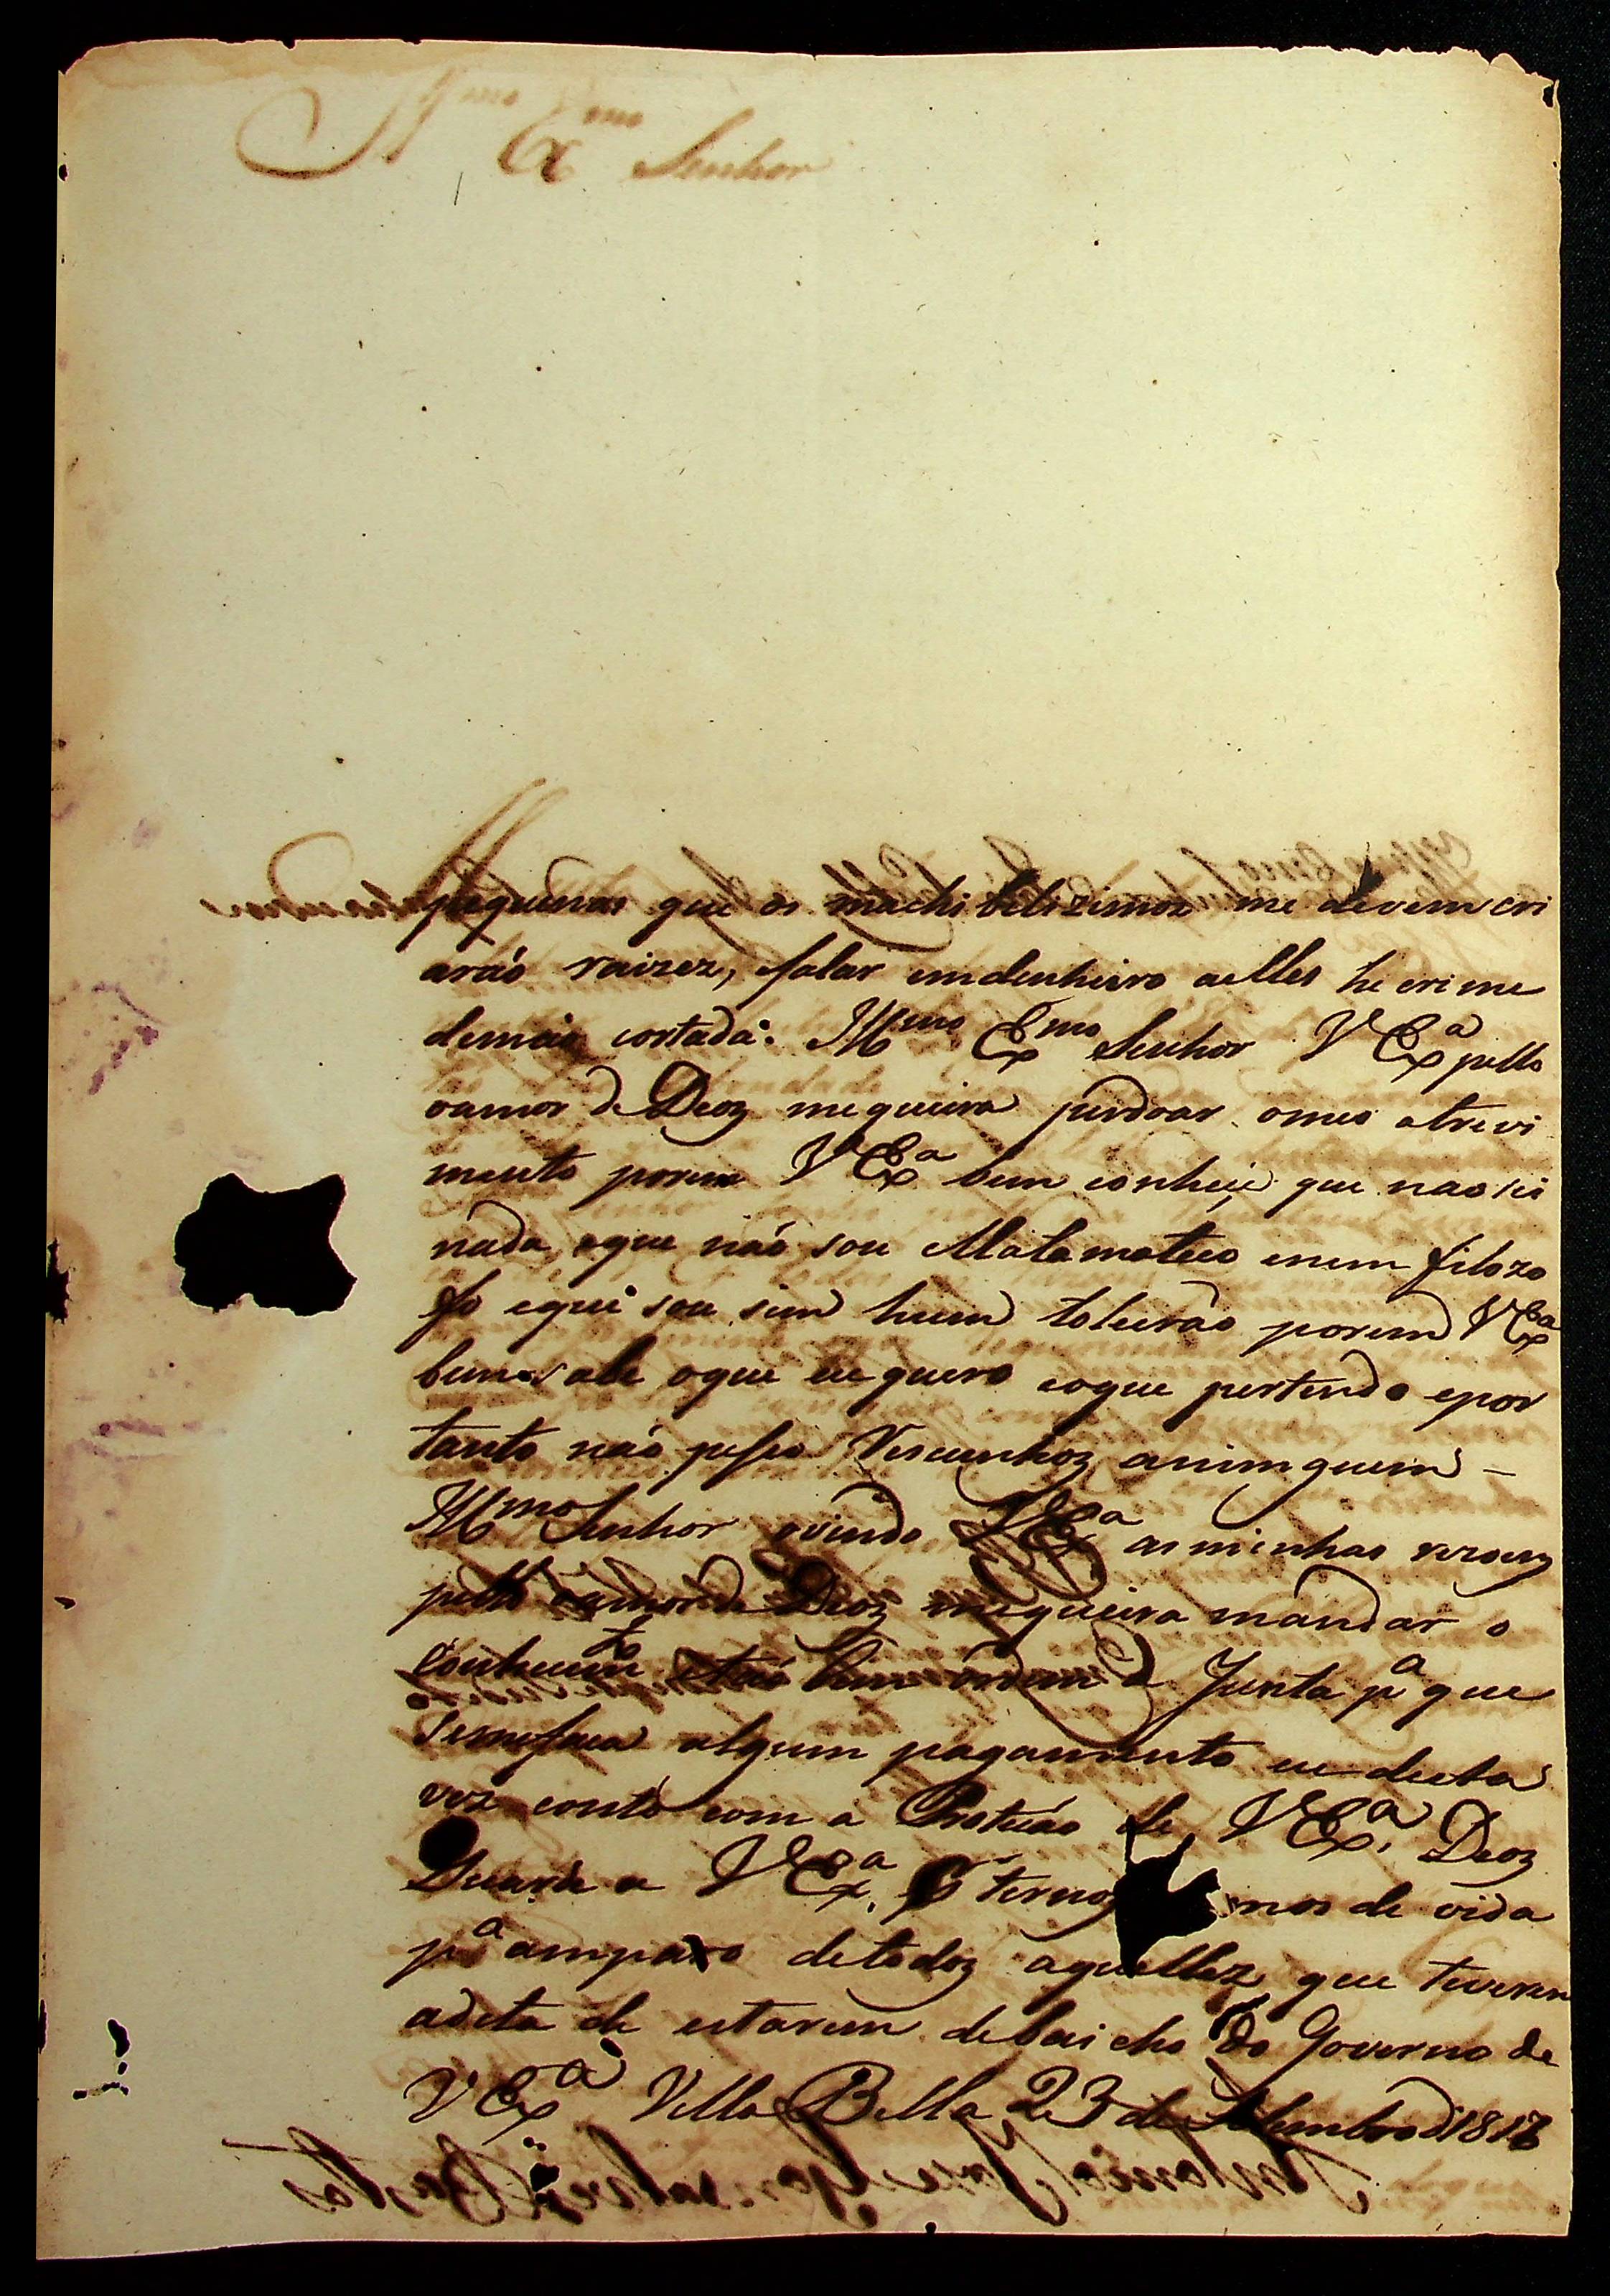 Illmo Exmo Senhor
pequenas que os me devem cri
arão raizez, falar emdenheiro aelles he crime
demão cortada: Illmo Exmo Senhor VExa pello
oamor de Deoz mequeira perdoar omeo atrevi
mento porem VExa bem conheçe que nao sei
nada, eque não sou Matamateco enem filozo
fo eque sou sim hum toleirão porem VExa
bem sabe oque eu quero eoque pertendo epor
tanto não pesso Vencunhoz animguem -
Illmo Senhor ovindo VExa asminhas rezoens
pello oamor de Deoz mequeira mandar o
conhecimto hum ordem a Junta pa que
semefaca algum pagamento eu desta
vez conto com a Protecão de VExa. Deoz
Guarde a VExa. Eternoz annos de vida
pa amparo detodoz aquellez que tiverem
adita de estarem debaicho do Governo de
VExa Villa Bella 23 de Setembro d 1817
Antonio Joze Gonsalvez Bastos